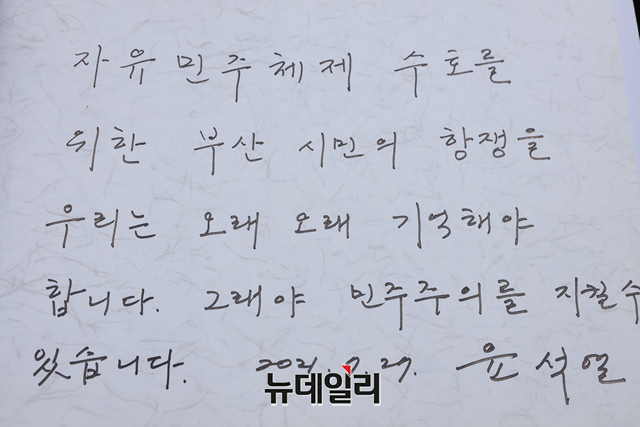 자유민주체제 수호를
위한 부산 시민의 항쟁을
우리는 오래 오래 기억해야
합니다. 그래야 민주주의를 지킬수
있습니다. 2021. 7. 27. 윤석열
뉴데일리